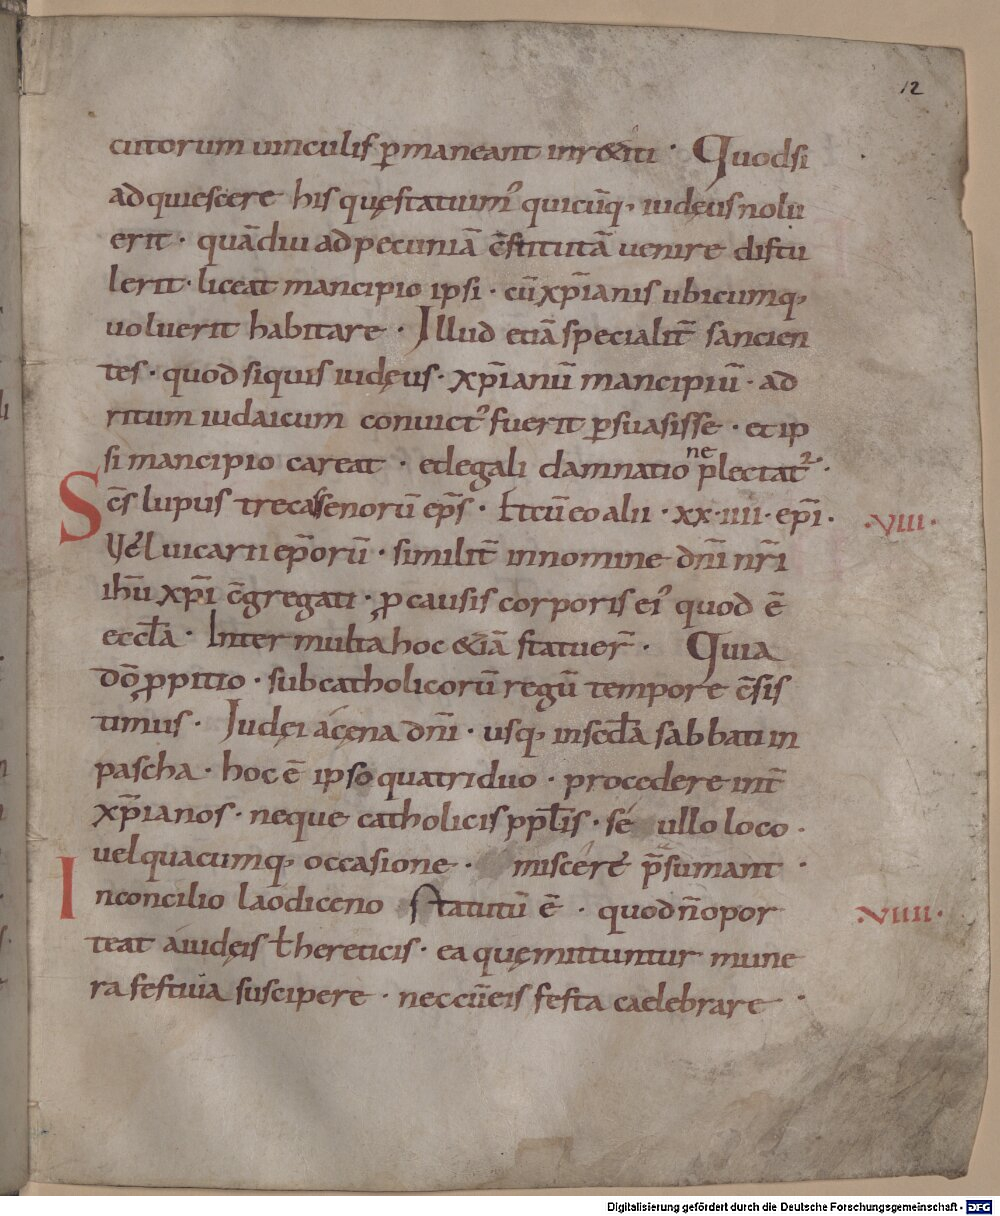 12
ciutorum uinculis p̄maneant inr&iti · Quodsi
adquiescere his quęstatuim᾿ quicūq, iudęus nolu
erit · quādiu adpecuniā c̄stitutā uenire distu
lerit · liceat mancipio ipsi · cū xp̄ianis ubicumq,
uoluerit habitare · Illud etiā specialit̄ sancien
tes · quod siquis iudęus · xp̄ianū mancipiū · ad
ritum iudaicum conuict᾿ fuerit p̄suasisse · et ip
si mancipio careat · etlegali damnatione plectat᾿ ·
Sc̄s lupus trecassenorū ep̄s · &cū eo alii · xx·iiii · ep̄i · ·VIII·
Vel uicarii ep̄orū · similit̄ innomine dn̄i nr̄i
ih̄u xp̄i c̄gregati · p causis corporis ei᾿ quod ē
eccl̄a · Inter multa hoc &iā statuer̄ · Quia
dō ppitio · subcatholicorū regū tempore c̄sis
timus · Iudęi acęna dn̄i · usq, insecd̄a sabbati in
pascha · hoc ē ipso quatriduo · procedere int̄
xp̄ianos · neque catholicis ppl̄is · se ullo loco ·
uelquacumq, occasione · miscere p̄sumant ·
Inconcilio laodiceno statutū ē · quod n̄ opor ·VIIII·
teat aiudęis ł hereticis · ea quęmittuntur mune
ra festiuia suscipere · nec cū eis festa caelebrare ·
Digitalisierung gefördert durch die Deutsche Forschungsgemeinschaft - DFG